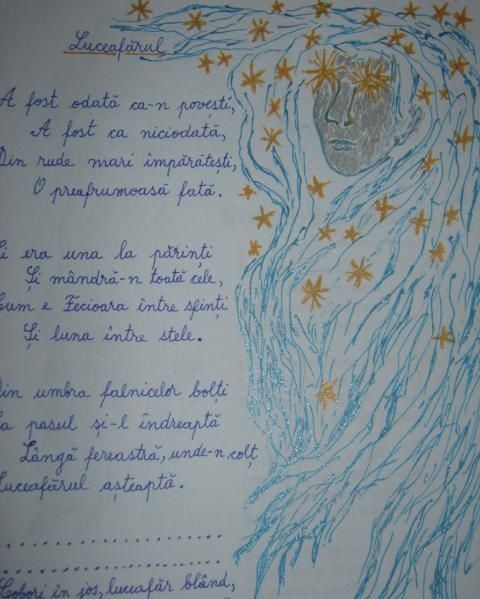 Luceafărul
A fost odată ca-n povești,
A fost ca niciodată,
Din rude mari împărătești,
O preafrumoasă fată.
Și era una la părinți
Și mândră-n toată cele,
Cum e Fecioara între sfinți
Și luna între stele.
Din umbra falnicelor bolți
Ea pasul și-l îndreaptă
Lângă fereastră, unde-n colț
Luceafărul așteaptă.
..............................
..............................
Cobori în jos, luceafăr blând,